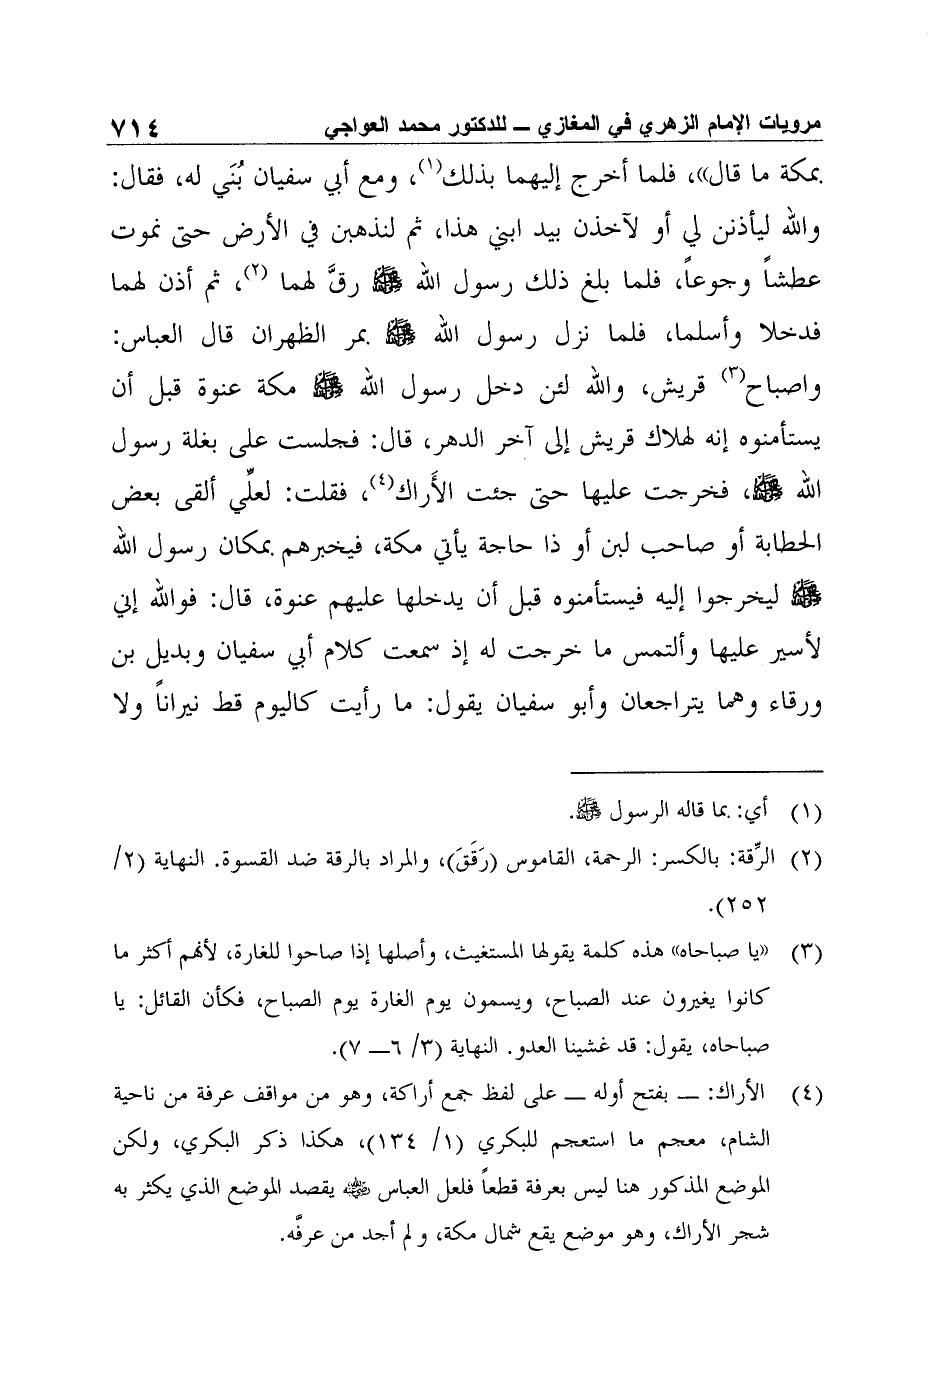 مرويات الإمام الزهري في المغازي ــ للدكتور محمد العواجي ٧١٤
بمكة ما قال»، فلما أخرج إليهما بذلك(١)، ومع أبي سفيان بُنَي له، فقال:
والله ليأذنن لي أو لآخذن بيد ابني هذا، ثم لنذهبن في الأرض حتى نموت
عطشاً وجوعاً، فلما بلغ ذلك رسول الله ﷺ رقَّ لهما (٢)، ثم أذن لهما
فدخلا وأسلما، فلما نزل رسول الله ﷺ بمر الظهران قال العباس:
واصباح(٣) قريش، والله لئن دخل رسول الله ﷺ مكة عنوة قبل أن
يستأمنوه إنه لهلاك قريش إلى آخر الدهر، قال: فجلست على بغلة رسول
الله ﷺ، فخرجت عليها حتى جئت الأَراك(٤)، فقلت: لعلِّي ألقى بعض
الحطابة أو صاحب لبن أو ذا حاجة يأتي مكة، فيخبرهم بمكان رسول الله
ﷺ ليخرجوا إليه فيستأمنوه قبل أن يدخلها عليهم عنوة، قال: فوالله إني
لأسير عليها وألتمس ما خرجت له إذ سمعت كلام أبي سفيان وبديل بن
ورقاء وهما يتراجعان وأبو سفيان يقول: ما رأيت كاليوم قط نيراناً ولا
(١) أي: بما قاله الرسول ﷺ.
(٢) الرِّقة: بالكسر: الرحمة، القاموس (رَقَقَ)، والمراد بالرقة ضد القسوة. النهاية (٢/
٢٥٢).
(٣) «يا صباحاه» هذه كلمة يقولها المستغيث، وأصلها إذا صاحوا للغارة، لأنهم أكثر ما
كانوا يغيرون عند الصباح، ويسمون يوم الغارة يوم الصباح، فكأن القائل: يا
صباحاه، يقول: قد غشينا العدو. النهاية (٣/ ٦ــ ٧).
(٤) الأراك: ــ بفتح أوله ــ على لفظ جمع أراكة، وهو من مواقف عرفة من ناحية
الشام، معجم ما استعجم للبكري (١/ ١٣٤)، هكذا ذكر البكري، ولكن
الموضع المذكور هنا ليس بعرفة قطعاً فلعل العباس رضي الله عنه يقصد الموضع الذي يكثر به
شجر الأراك، وهو موضع يقع شمال مكة، ولم أجد من عرفَّه.